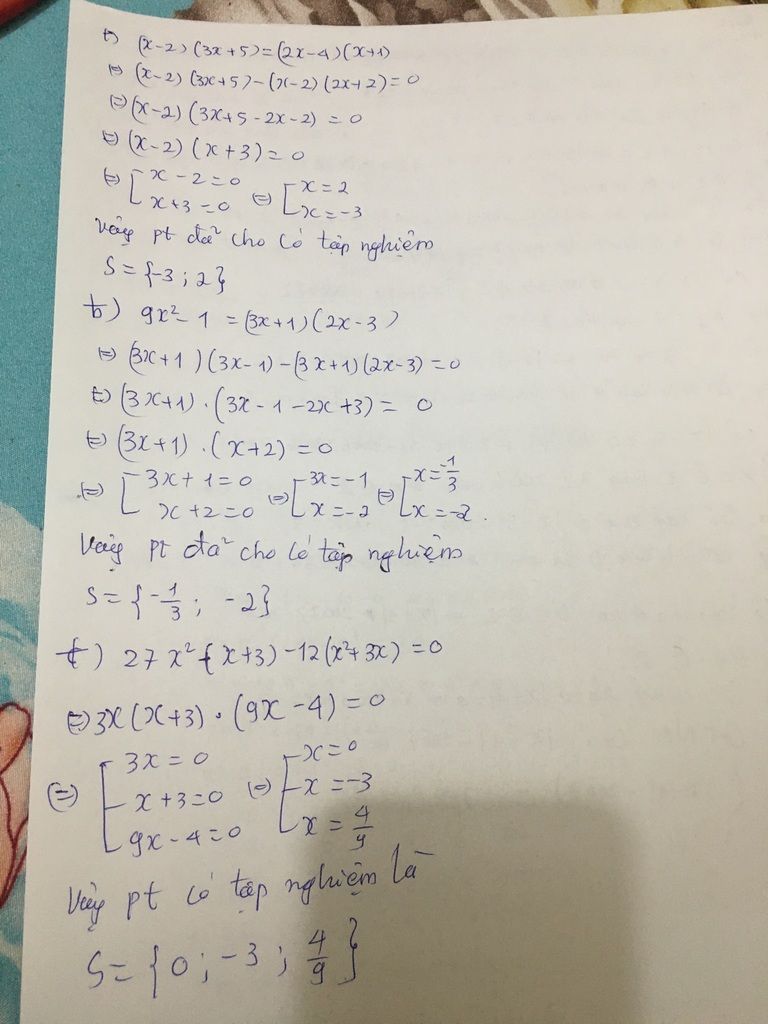 (x-2)(3x+5)=(2x-4)(x+1)
⇔ (x-2)(3x+5)-(x-2)(2x+2)=0
⇔ (x-2)(3x+5-2x-2)=0
⇔ (x-2)(x+3)=0
⇔ [x-2=0 ⇔ [x=2
x+3=0 x=-3
Vậy pt đã cho có tập nghiệm
S={-3;2}
b) 9x²-1=(3x+1)(2x-3)
⇔ (3x+1)(3x-1)-(3x+1)(2x-3)=0
⇔ (3x+1).(3x-1-2x+3)=0
⇔ (3x+1).(x+2)=0
⇔ [3x+1=0 ⇔ [3x=-1 ⇔ [x=-1/3
x+2=0 x=-2 x=-2.
Vậy pt đã cho có tập nghiệm
S={-1/3; -2}
27x²(x+3)-12(x²+3x)=0
⇔ 3x(x+3).(9x-4)=0
⇔ [3x=0 ⇔ [x=0
x+3=0 x=-3
9x-4=0 x=4/9
Vậy pt có tập nghiệm là
S={0;-3;4/9}